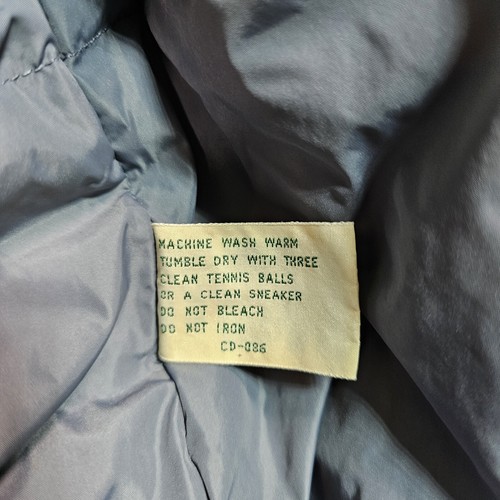 MACHINE WASH WARM
TUMBLE DRY WITH THREE
CLEAN TENNIS BALLS
OR A CLEAN SNEAKER
DO NOT BLEACH
DO NOT IRON
CD-086